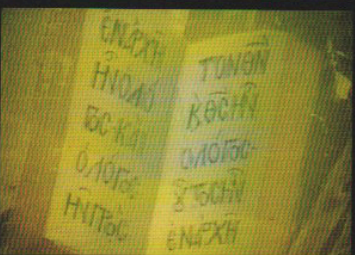 ἘΝἈΡΧΗ
ἮΝΟΛΌ
ΓΟC·ΚΑΙ
ὁΛΌΓΟC
ΗΝΠΡῸC
ΤΟΝΘΝ
ΚΘCΗΝ
ΟΛΌΓΟC·
ΟΥΤΟCΗΝ
ἘΝἈΡΧΗ